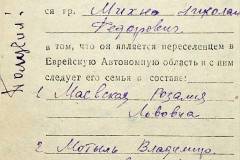 ся гр. Михно Николай
Федорович
в том, что он является переселенцем в
Еврейскую Автономную область и с ним
следует его семья в составе:
1 Маевская Розалия
Львовна
2 Мотыль Владимир